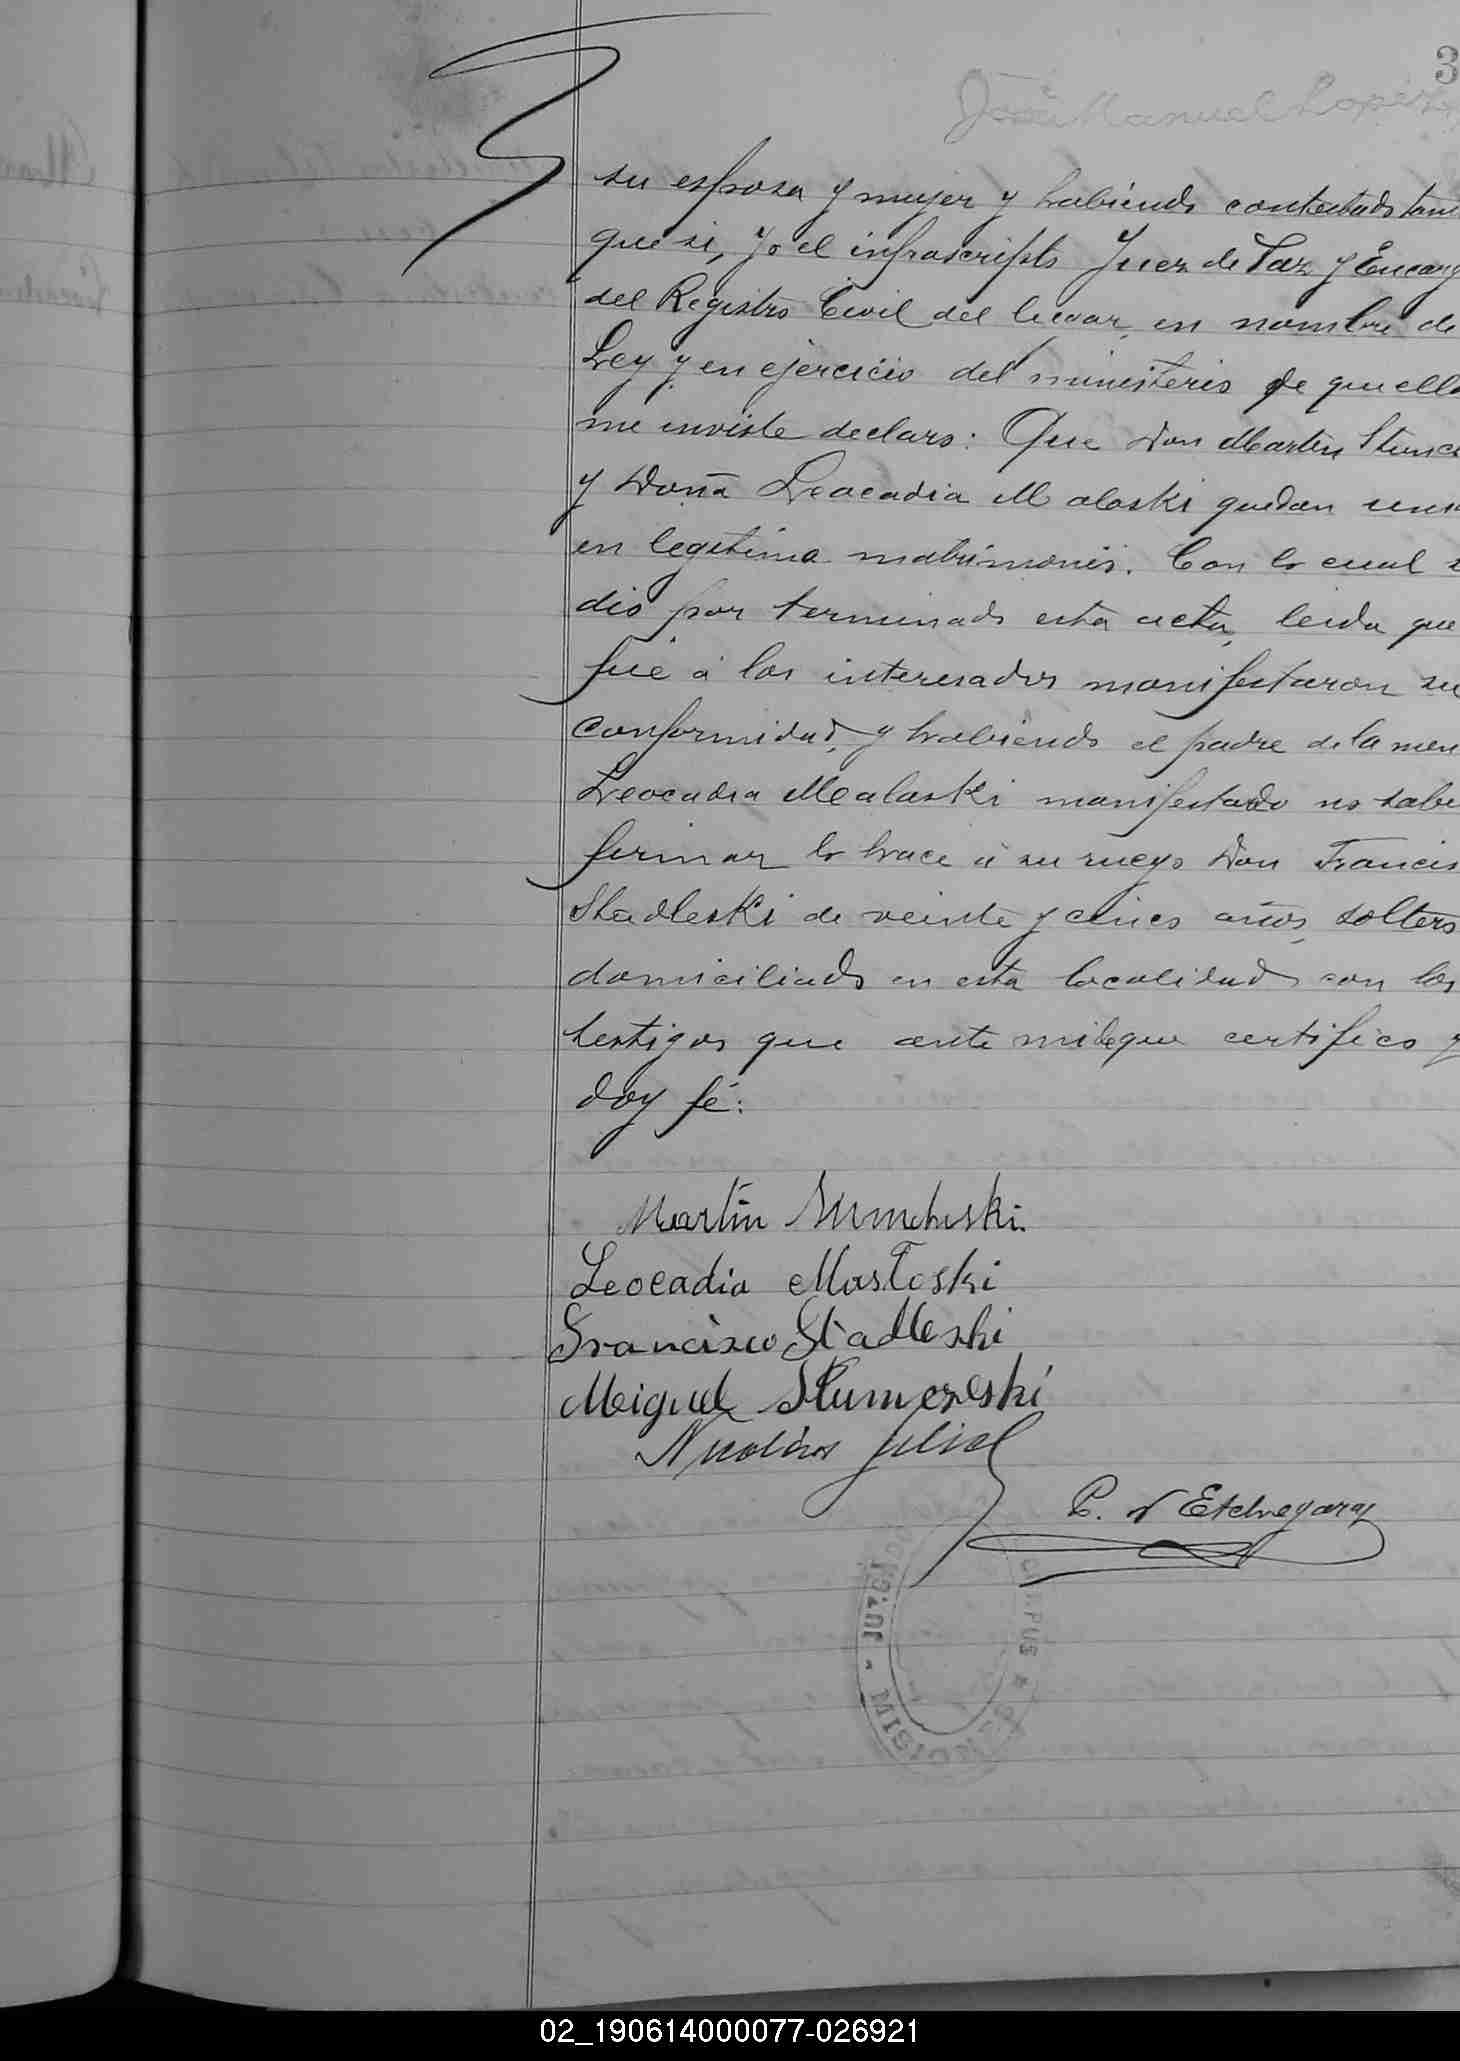 3
José Manuel Lopez
su esposa y mujer y habiendo contestado tam
que si, yo el infrascripto Juez de Paz y Encarg
del Registro Civil del lugar, en nombre de
Ley y en ejercicio del ministerio de que ella
me inviste declaro: Que Don Martin Stumc
y Doña Leocadia Malaski quedan uni
en legitimo matrimonio. Con lo cual s
dio por terminado esta acta, leida que
fué á los interesados manifestaron su
conformidad, y habiendo el padre de la men
Leocadia Malaski manifestado no sabe
firmar lo hace á su ruego Don Francis
Stadleski de veinte y cinco años, soltero
domiciliado en esta localidad con los
testigos que ante mi de que certifico y
doy fé:
Martin
Leocadia Mastoski
Francisco Stadleski
Miguel Stumczeski
Nicolás Julial
P. N Etchegaray
JUZGADO CORPUS * MISIONES
02_190614000077-026921